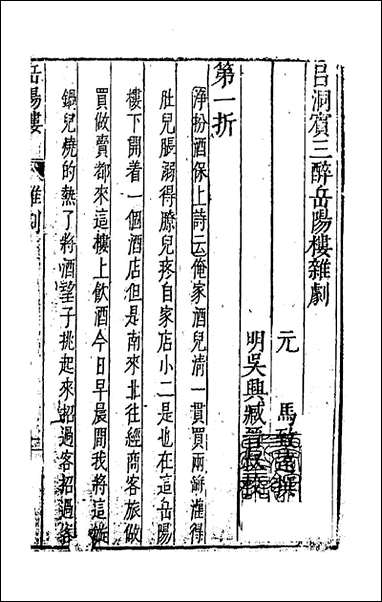 呂洞賓三醉岳陽樓雜劇
元　馬致遠撰
明吳興臧
第一折
淨扮酒保上詩云俺家酒兒清一貫買兩缾灌得
肚兒脹溺得膫兒疼自家店小二是也在這岳陽
樓下開着一個酒店但是南來北往經商客旅做
買做賣都來這樓上飲酒今日早晨間我將這鏇
鍋兒燒的熱了將酒望子挑起來招過客招過客
岳陽樓　雜劇　一